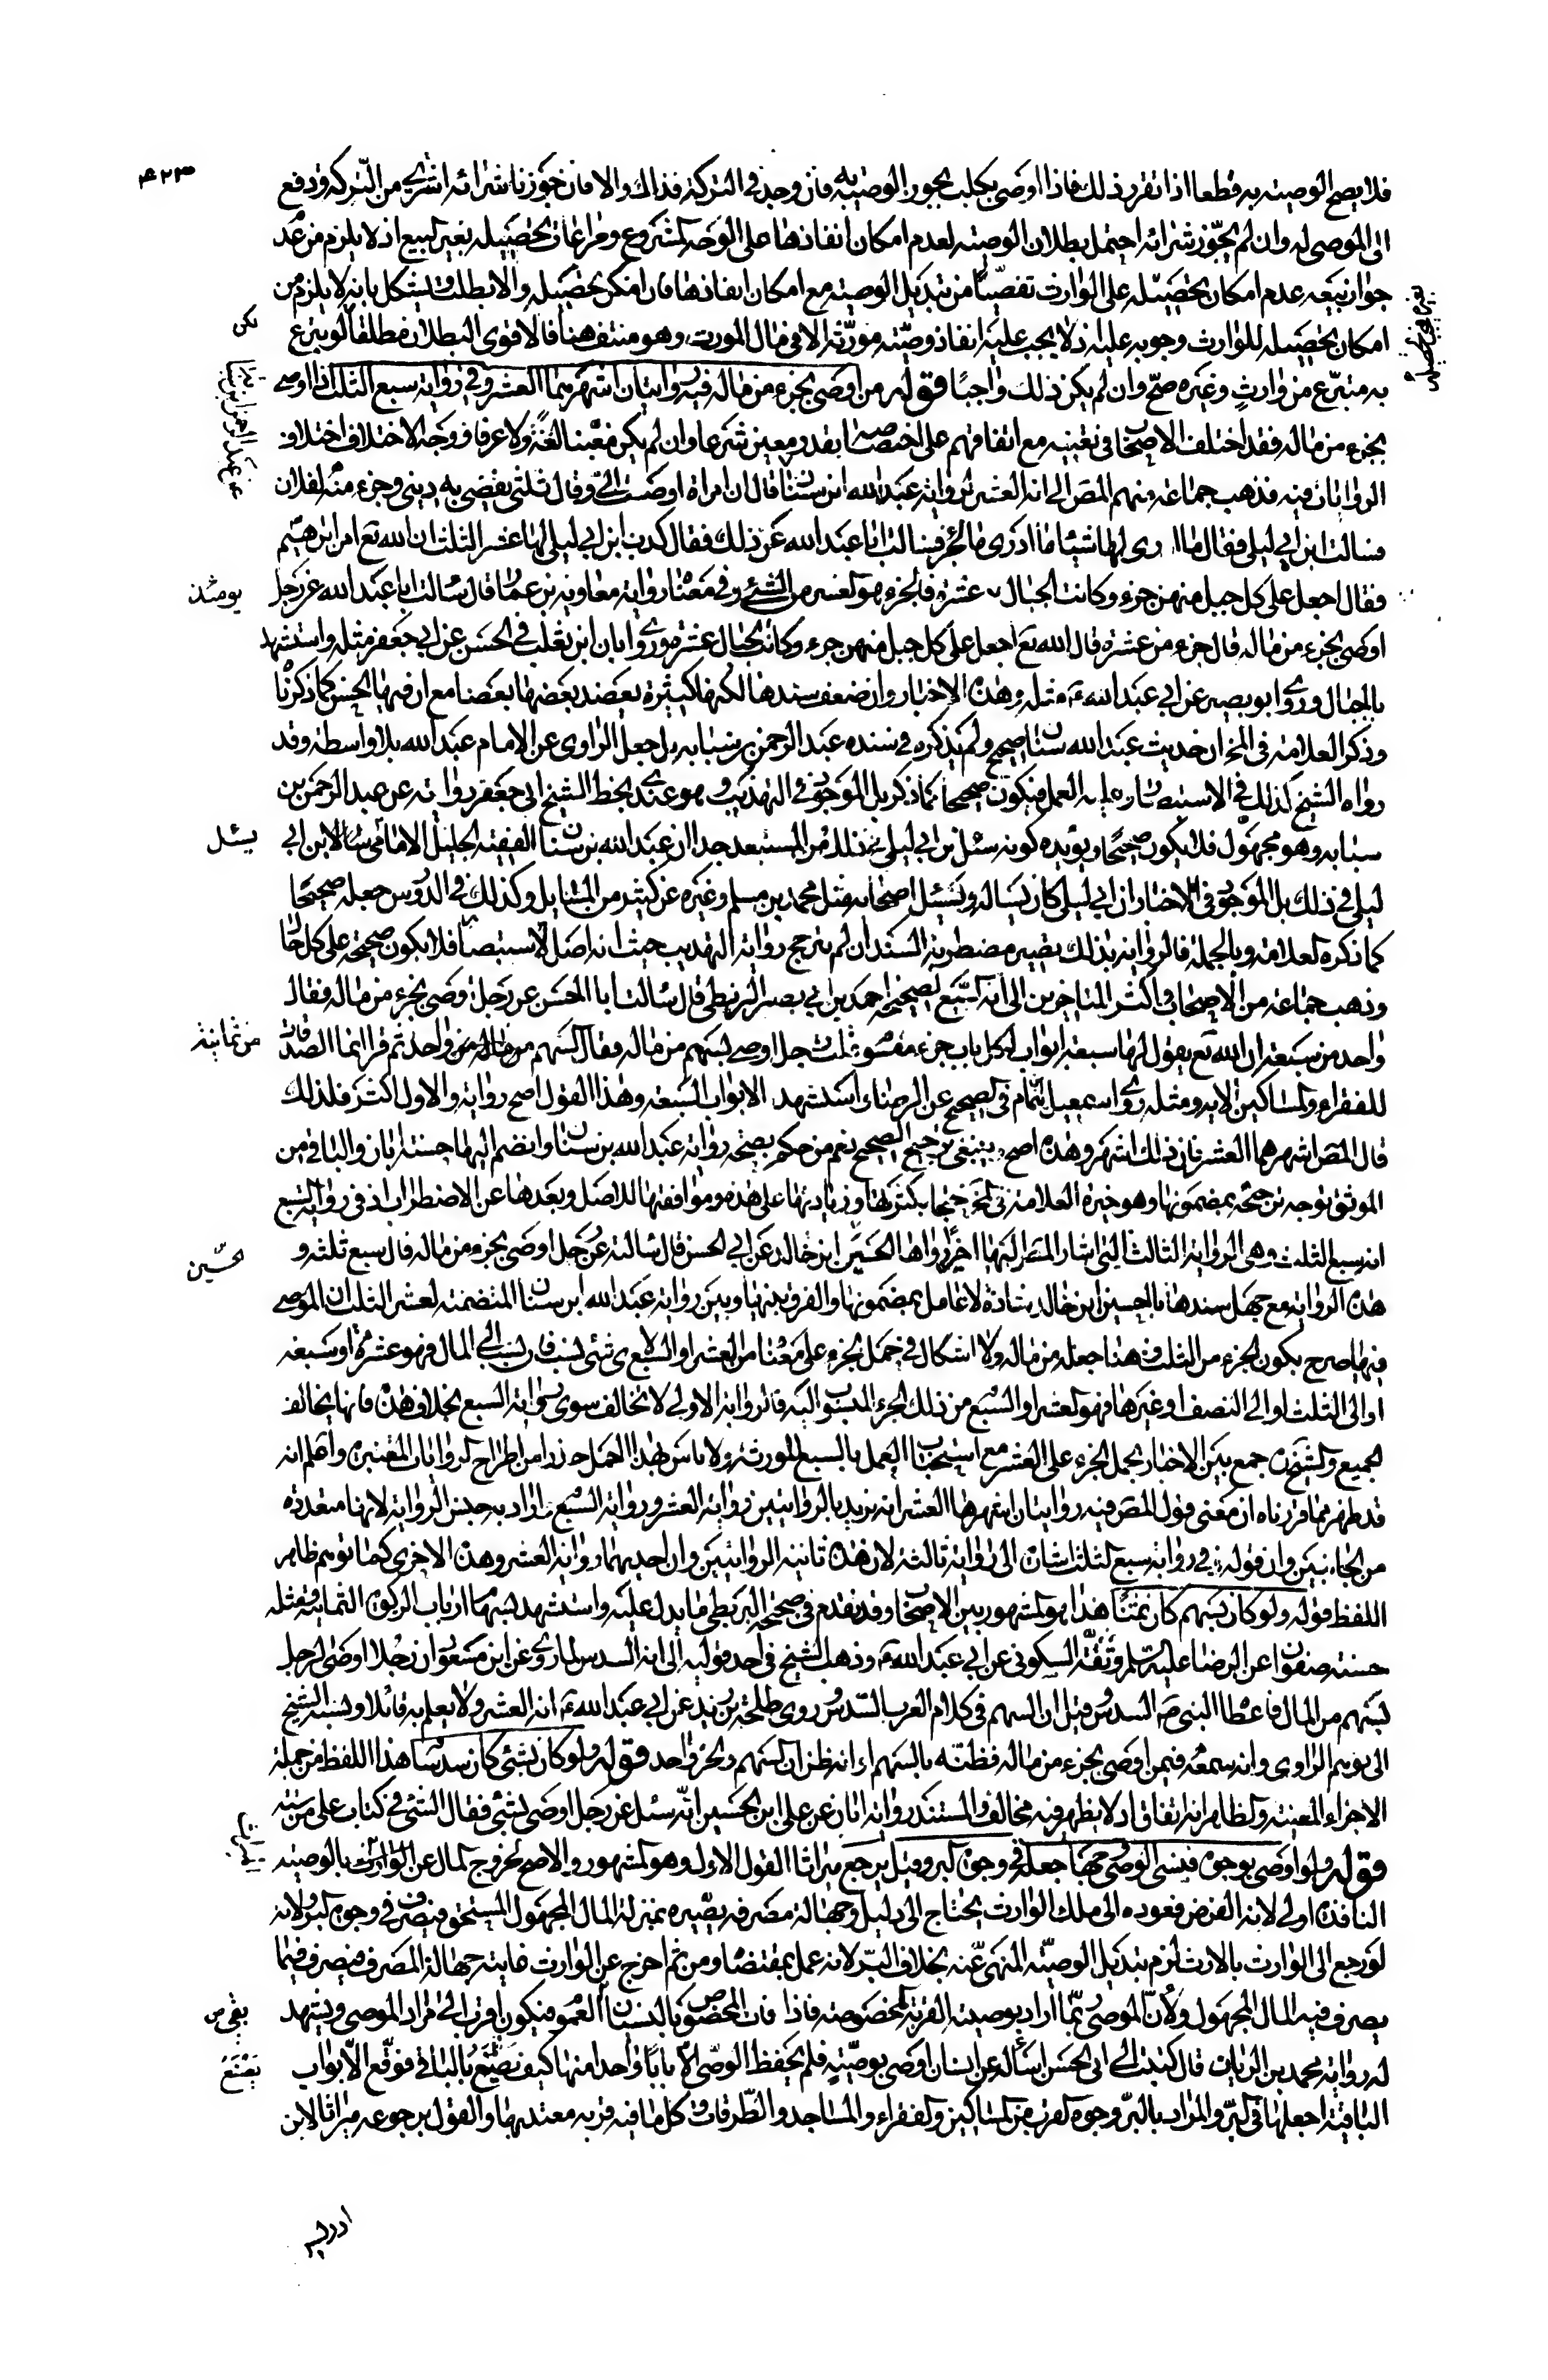 ۴۲۳
فلا يصح الوصية به قطعا اذا تقرر ذلك فاذا اوصى بكلب يجوز الوصية به فان وجد في التركة فذاك والا فان جوزنا شرائه اشترى من التركة ودفع
الى الموصى له وان لم يجوز شرائه احتمل بطلان الوصية لعدم امكان انفاذها على الوجه المشروع ومراعات تحصيله بغير البيع اذ لا يلزم من عدم
جواز بيعه عدم امكان تحصيله على الوارث تفصيا من تبديل الوصية مع امكان انفاذها فان امكن تحصيله والا بطلت ويشكل بانه لا يلزم من
امكان تحصيله للوارث وجوبه عليه اذ لا يجب عليه انفاذ وصية مورثه الا في مال المورث وهو منتف هنا فالاقوى البطلان مطلقا لو تبرع
به متبرع من وارث وغيره صح وان لم يكن ذلك واجبا قوله من اوصى بجزء من ماله فيه روايتان اشهرهما العشر وفي رواية سبع الثلث اذا اوصى
بجزء من ماله فقد اختلف الاصحاب في تعيينه مع اتفاقهم على اختصاصه بقدر معين شرعا وان لم يكن معينا لغة ولا عرفا ووجه الاختلاف اختلاف
الروايات فيه فذهب جماعة ومنهم المص الى انه العشر لرواية عبد الله ابن سنان قال ان امراة اوصت الي وقال ثلثي يقضى به ديني وجزء منه لفلان
فسالت ابن ابي ليلى فقال ما ارى لها شيئا ما ادرى ما الجزء فسالت ابا عبد الله عن ذلك فقال كذب ابن ابي ليلى لها عشر الثلث ان الله تع امر ابرهيم
فقال اجعل على كل جبل منهن جزء وكانت الجبال عشرة فالجزء هو العشر من الشئ وفي معناه رواية معاوية بن عمار قال سالت ابا عبد الله عن رجل
اوصى بجزء من ماله قال جزء من عشرة قال الله تع اجعل على كل جبل منهن جزء وكانت الجبال عشرة وروى ابان ابن تغلب في الحسن عن ابي جعفر مثله واستشهد
بالجبال وروى ابو بصير عن ابي عبد الله ع مثله وهذه الاخبار وان ضعف سندها لكنها كثيرة يعضد بعضها بعضا مع ان فيها الحسن كما ذكرنا
وذكر العلامة في المخ ان حديث عبد الله سنان صحيح ولم يذكره في سنده عبد الرحمن بن سيابه بل جعل الراوى عن الامام عبد الله بلا واسطة وقد
رواه الشيخ كذلك في الاستبصار فيكون صحيحا كما ذكر بل الموجود في التهذيب وهو عندى بخط الشيخ ابي جعفر روايته عن عبد الرحمن بن
سيابه وهو مجهول فلا يكون صحيحا ويؤيده كونه سئل بن ابي ليلى عن ذلك فمن المستبعد جدا ان عبد الله بن سنان الفقيه الجليل الامامى سال ابن ابي
ليلى في ذلك بل الموجود في الاخبار ان ابي ليلى كان يساله ويسئل اصحابه مثل محمد بن مسلم وغيره عن كثير من المسايل وكذلك في الدروس جعله صحيحا
كما ذكره العلامة وبالجملة فالرواية بذلك يصير مضطربة السند ان لم يترجح رواية التهذيب حيث انه اصل الاستبصار فلا يكون صحيحة على كل حال
وذهب جماعة من الاصحاب واكثر المتاخرين الى انه السبع لصحيحة احمد بن ابي نصر البزنطى قال سالت ابا الحسن عن رجل اوصى بجزء من ماله فقال
واحد من سبعة ان الله تع يقول لها سبعة ابواب لكل باب منهم جزء مقسوم قلت رجل اوصى بسهم من ماله فقال السهم من ماله من واحد ثم قرا انما الصدقات
للفقراء والمساكين الاية ومثله روى اسمعيل بن همام في الصحيح عن الرضا ع استشهد الابواب السبعة وهذا القول اصح رواية والاول اكثر فلذلك
قال المص اشهرهما العشر فان ذلك اشهر وهذه اصح وينبغى ترجيح الصحيح نعم من حكم بصحة رواية عبد الله بن سنان وانضم اليها حسنة ابان والباقى من
الموثق توجه ترجيحه بمضمونها وهو خيرة العلامة في المخ محتجا بكثرتها وزيادتها على هذه وموافقتها للاصل وبعدها عن الاضطراب اذ في رواية السبع
انه سبع الثلث وهي الرواية الثالثة التي اشار المص اليها اخيرا رواها الحسين ابن خالد عن ابي الحسن قال سالته عن رجل اوصى بجزء من ماله قال سبع ثلثه و
هذه الرواية مع جهل سندها بالحسين ابن خالد شاذة لا عامل بمضمونها والفرق بينها وبين رواية عبد الله ابن سنان المتضمنة لعشر الثلث ان الموصى
فيها صرح بكون الجزء من الثلث وهنا جعله من ماله ولا اشكال في حمل الجزء على معناه من العشر او السبع لاى شئ نسب فان نسب الى المال فهو عشره او سبعه
او الى الثلث او الى النصف او غيرها فهو العشر او السبع من ذلك الجزء المنسوب اليه فالرواية الاولى لا تخالف سوى رواية السبع بخلاف هذه فانها يخالف
الجميع والشيخ ره جمع بين الاخبار بحمل الجزء على العشر مع استحباب العمل بالسبع للورثة ولا باس بهذا الحمل حذرا من اطراح الروايات المعتبرة واعلم انه
قد ظهر مما قررناه ان معنى قول المص فيه روايتان اشهرهما العشر انه يريد بالروايتين رواية العشر ورواية السبع واراد به جنس الرواية لانها متعددة
من الجانبين وان قوله وفي رواية سبع الثلث اشارة الى رواية ثالثة لان هذه ثانية الروايتين وان احديهما رواية العشر وهذه الاخرى كما توهم ظاهر
اللفظ قوله ولو كان بسهم كان ثمنا هذا هو المشهور بين الاصحاب وقد تقدم في صحيحة البزنطى ما يدل عليه واستشهد بسهام ارباب الزكوة الثمانية ومثله
حسنة صفوان عن الرضا عليه السلم وموثقة السكونى عن ابي عبد الله ع وذهب الشيخ في احد قوليه الى انه السدس لما روى عن ابن مسعود ان رجلا اوصى لرجل
بسهم من المال فاعطاه النبى ص السدس وقيل ان السهم في كلام العرب السدس وروى طلحة بن زيد عن ابي عبد الله ع انه العشر ولا يعلم به قائلا ونسبه الشيخ
الى توهم الراوى وانه سمعه فيمن اوصى بجزء من ماله فظنه بالسهم او انه ظن ان السهم والجزء واحد قوله ولو كان بشئ كان سدسا هذا اللفظ من جملة
الاجزاء المعينة والظاهر انه اتفاق اذ لا يظهر فيه مخالف والمستند رواية ابان عن على ابن الحسين انه سئل عن رجل اوصى بشئ فقال الشئ في كتاب على من ستة
قوله ولو اوصى بوجوه فنسى الوصى وجها جعله في وجوه البر وقيل يرجع ميراثا القول الاول وهو المشهور والاصح لخروج المال عن الوارث بالوصية
النافذة اولى لانه الفرض فعوده الى ملك الوارث يحتاج الى دليل وجهالة مصرفه يصيره بمنزلة المال المجهول المستحق فيصرف في وجوه البر ولانه
لو رجع الى الوارث بالارث لزم تبديل الوصية المنهى عنه بخلاف البر لانه عمل بمقتضاها ومن ثم اخرج عن الوارث غايته جهالة المصرف فيصرف فيما
يصرف فيه المال المجهول ولان الموصى ربما اراد بوصيته القربة المخصوصة فاذا فات الخصوص بالنسيان العموم فيكون اقرب الى مراد الموصى ويشهد
له رواية محمد بن الريان قال كتبت الى ابي الحسن اساله عن انسان اوصى بوصية فلم يحفظ الوصى الا بابا واحدا منها كيف يصنع بالباقى فوقع الابواب
الباقية اجعلها في البر والمراد بالبر وجوه القرب من المساكين والفقراء والمساجد والطرقات وكل ما فيه قربة معتد بها والقول برجوعه ميراثا لابن
لكن
عن عبد الرحمن بن سيابه
يومئذ
يسئل
من ثمانية
الحسين
بقى ص
يصنع
ادريس